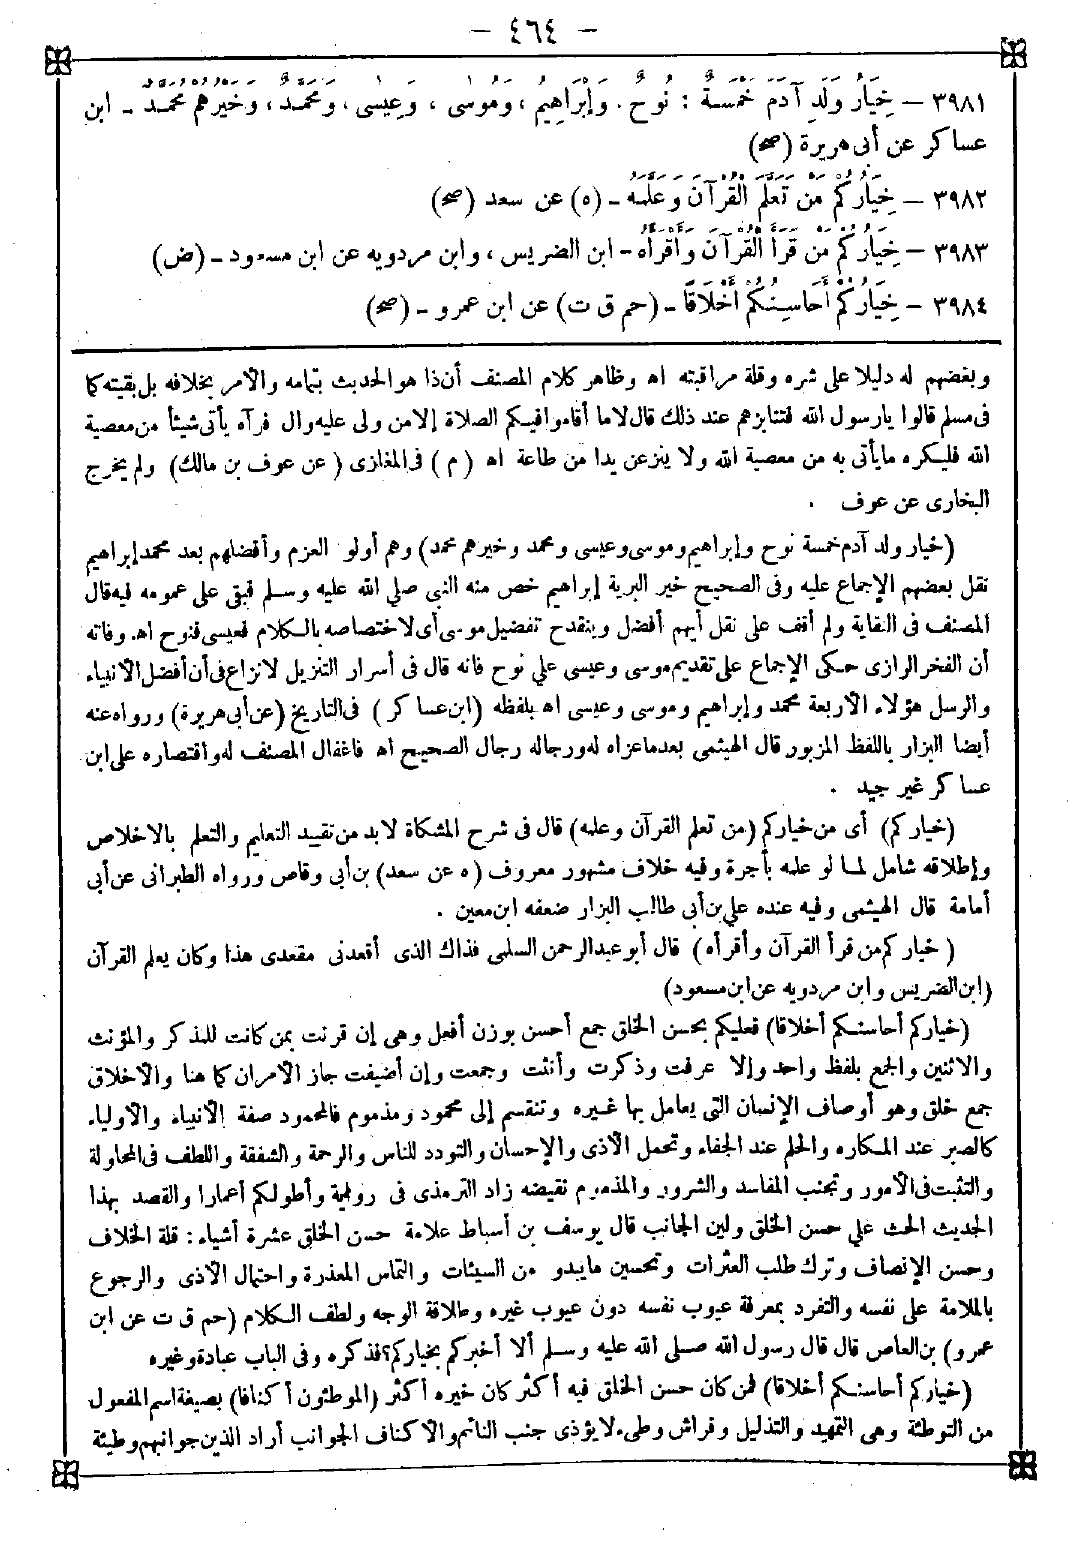 - ٤٦٤ -
٣٩٨١ - خِيَارُ وَلَدِ آدَمَ خَمْسَةٌ : نُوحٌ . وَإِبْرَاهِيمُ ، وَمُوسَى ، وَعِيسَى ، وَمُحَمَّدٌ ، وَخَيْرُهُمْ مُحَمَّدٌ - ابن
عساكر عن أبى هريرة (صح)
٣٩٨٢ - خِيَارُكُمْ مَنْ تَعَلَّمَ الْقُرْآنَ وَعَلَّمَهُ - (ه) عن سعد (صح)
٣٩٨٣ - خِيَارُكُمْ مَنْ قَرَأَ الْقُرْآنَ وَأَقْرَأَهُ - ابن الضريس ، وابن مردويه عن ابن مسعود - (ض)
٣٩٨٤ - خِيَارُكُمْ أَحَاسِنُكُمْ أَخْلَاقًا - (حم ق ت) عن ابن عمرو - (صح)
وبغضهم له دليلا على شره وقلة مراقبته اه وظاهر كلام المصنف أن ذا هو الحديث بتمامه والأمر بخلافه بل بقيته كما
فى مسلم قالوا يارسول الله فننابزهم عند ذلك قال لا ما أقاموا فيكم الصلاة إلا من ولى عليه وال فرآه يأتى شيئا من معصية
الله فليكره ما يأتى به من معصية الله ولا ينزعن يدا من طاعة اه (م) فى المغازى (عن عوف بن مالك) ولم يخرج
البخارى عن عوف .
(خيار ولد آدم خمسة نوح وإبراهيم وموسى وعيسى ومحمد وخيرهم محمد) وهم أولو العزم وأفضلهم بعد محمد إبراهيم
نقل بعضهم الإجماع عليه وفى الصحيح خير البرية إبراهيم خص منه النبي صلي الله عليه وسلم فبقى على عمومه فيه قال
المصنف فى النقاية ولم أقف على نقل أيهم أفضل وينقدح تفضيل موسى أى لاختصاصه بالكلام فعيسى فنوح اه. وفاته
أن الفخر الرازى حكى الإجماع على تقديم موسى وعيسى علي نوح فانه قال فى أسرار التنزيل لا نزاع فى أن أفضل الأنبياء
والرسل هؤلاء الأربعة محمد وإبراهيم وموسى وعيسى اه بلفظه (ابن عساكر) فى التاريخ (عن أبى هريرة) ورواه عنه
أيضا البزار باللفظ المزبور قال الهيثمى بعدما عزاه له ورجاله رجال الصحيح اه فاغفال المصنف له واقتصاره على ابن
عساكر غير جيد .
(خياركم) أى من خياركم (من تعلم القرآن وعلمه) قال فى شرح المشكاة لا بد من تقييد التعليم والتعلم بالاخلاص
وإطلاقه شامل لما لو علمه بأجرة وفيه خلاف مشهور معروف (ه عن سعد) بن أبى وقاص ورواه الطبرانى عن أبى
أمامة قال الهيثمى وفيه عنده علي بن أبي طالب البزار ضعفه ابن معين .
(خياركم من قرأ القرآن وأقرأه) قال أبو عبد الرحمن السلمى فذاك الذى أقعدنى مقعدى هذا وكان يعلم القرآن
(ابن الضريس وابن مردويه عن ابن مسعود)
(خياركم أحاسنكم أخلاقا) فعليكم بحسن الخلق جمع أحسن بوزن أفعل وهى إن قرنت بمن كانت للمذكر والمؤنث
والاثنين والجمع بلفظ واحد وإلا عرفت وذكرت وأنثت وجمعت وإن أضيفت جاز الأمران كما هنا والأخلاق
جمع خلق وهو أوصاف الإنسان التى يعامل بها غيره وتنقسم إلى محمود ومذموم فالمحمود صفة الأنبياء والأولياء
كالصبر عند المكاره والحلم عند الجفاء وتحمل الأذى والإحسان والتودد للناس والرحمة والشفقة واللطف فى المحاولة
والتثبت فى الأمور وتجنب المفاسد والشرور والمذموم نقيضه زاد الترمذى فى رواية وأطولكم أعمارا والقصد بهذا
الحديث الحث علي حسن الخلق ولين الجانب قال يوسف بن أسباط علامة حسن الخلق عشرة أشياء : قلة الخلاف
وحسن الإنصاف وترك طلب العثرات وتحسين ما يبدو من السيئات والتماس المعذرة واحتمال الأذى والرجوع
بالملامة على نفسه والتفرد بمعرفة عيوب نفسه دون عيوب غيره وطلاقة الوجه ولطف الكلام (حم ق ت عن ابن
عمرو) بن العاص قال قال رسول الله صلى الله عليه وسلم ألا أخبركم بخياركم؟ فذكره وفى الباب عبادة وغيره
(خياركم أحاسنكم أخلاقا) فمن كان حسن الخلق فيه أكثر كان خيره أكثر (الموطئون أكنافا) بصيغة اسم المفعول
من التوطئة وهى التمهيد والتذليل وفراش وطىء لا يؤذى جنب النائم والأكناف الجوانب أراد الذين جوانبهم وطيئة